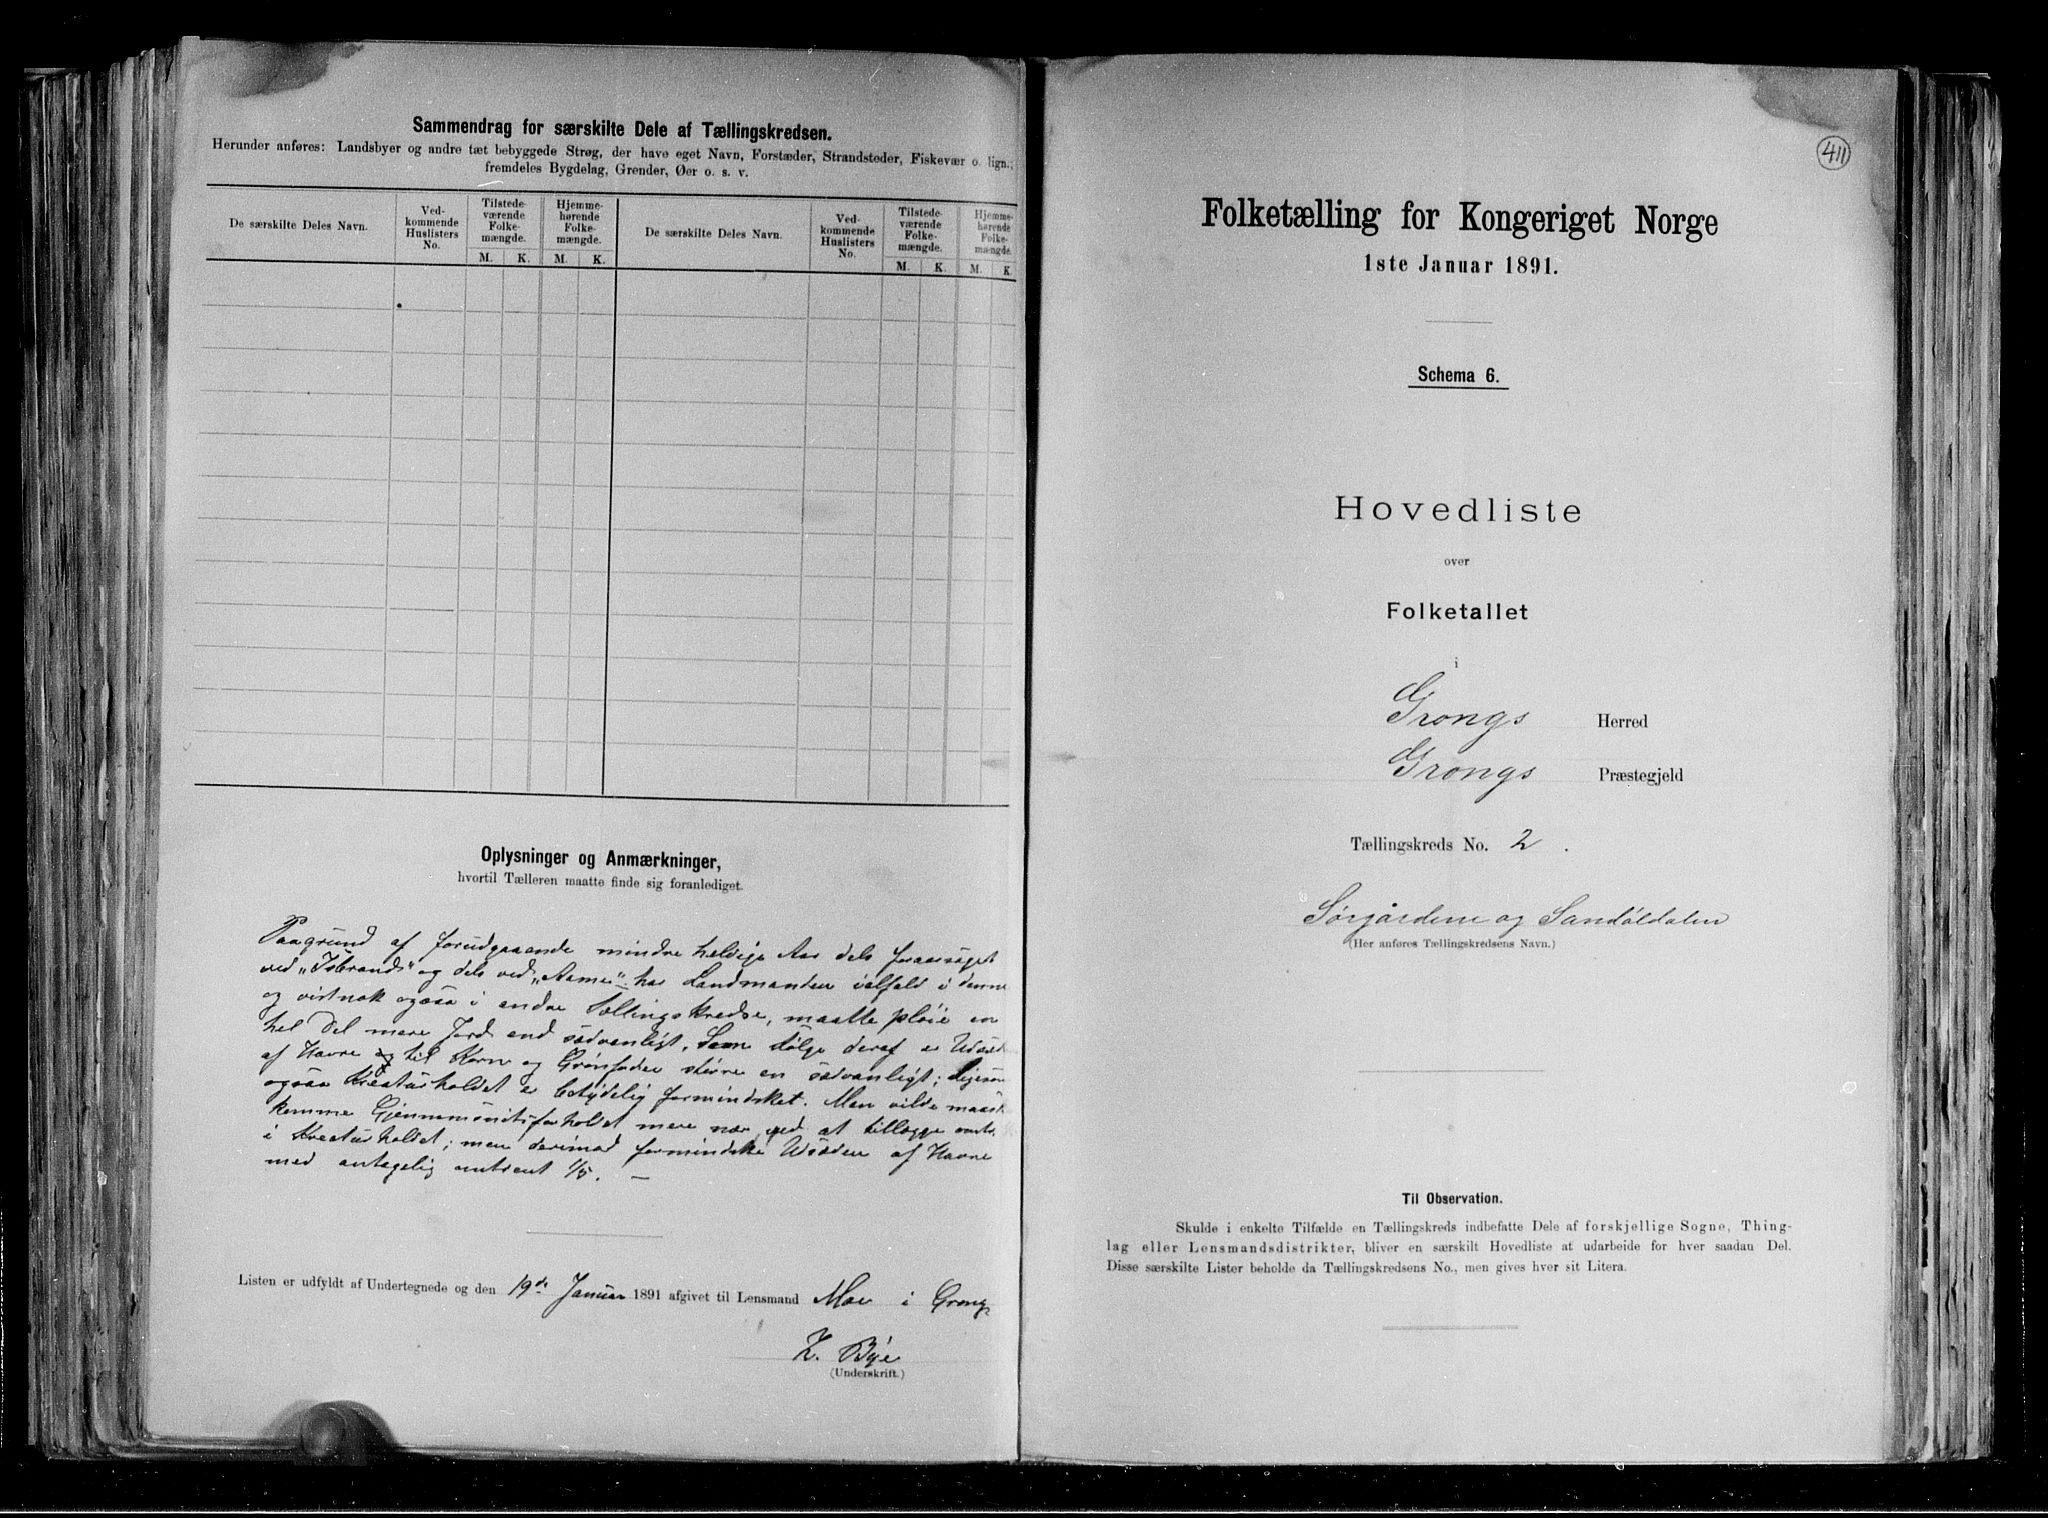 Sammendrag for særskilte Dele af Tællingskredsen.
Herunder anføres: Landsbyer og andre tæt bebyggede Strøg, der have eget Navn, Forstæder, Strandsteder, Fiskevær o. lign.;
fremdeles Bygdelag, Grender, Øer o. s. v.
De særskilte Deles Navn.
Ved-
kommende
Huslisters
No.
Tilstede-
værende
Folke-
mængde.
Hjemme-
hørende
Folke-
mængde.
De særskilte Deles Navn.
Ved-
kommende
Huslisters
No.
Tilstede-
værende
Folke-
mængde.
Hjemme-
hørende
Folke-
mængde.
M. K. M. K. M. K. M. K.
Oplysninger og Anmærkninger,
hvortil Tælleren maatte finde sig foranlediget.
Paagrund af forudgaaende mindre heldige Aar dels foraarsaget
ved „Isbrand" og dels ved „Aame" har Landmanden ialfald i denne
og vistnok ogsaa i andre Tællingskredse, maatte pløie en
hel Del mere Jord end sædvanligt. Som Følge deraf er
af Havre og til Korn og Grønfoder større en sædvanligt; ligesom
ogsaa Kreaturholdet er betydelig formindsket. Man vilde
komme Gjennemsnitsforholdet mere nær ved at tillægge
i Kreaturholdet; men derimod formindske Udsæden af Havre
med antagelig omtrent 1/5. —
Listen er udfyldt af Undertegnede og den 19de Januar 1891 afgivet til Lensmand Moe i Grong.
Z. Bye
(Underskrift.)
411
Folketælling for Kongeriget Norge
1ste Januar 1891.
Schema 6.
Hovedliste
over
Folketallet
i
Grongs Herred
Grongs Præstegjeld
Tællingskreds No. 2.
Sørgårdene og Sandöldalen
(Her anføres Tællingskredsens Navn.)
Til Observation.
Skulde i enkelte Tilfælde en Tællingskreds indbefatte Dele af forskjellige Sogne, Thing-
lag eller Lensmandsdistrikter, bliver en særskilt Hovedliste at udarbeide for hver saadan Del.
Disse særskilte Lister beholde da Tællingskredsens No., men gives hver sit Litera.